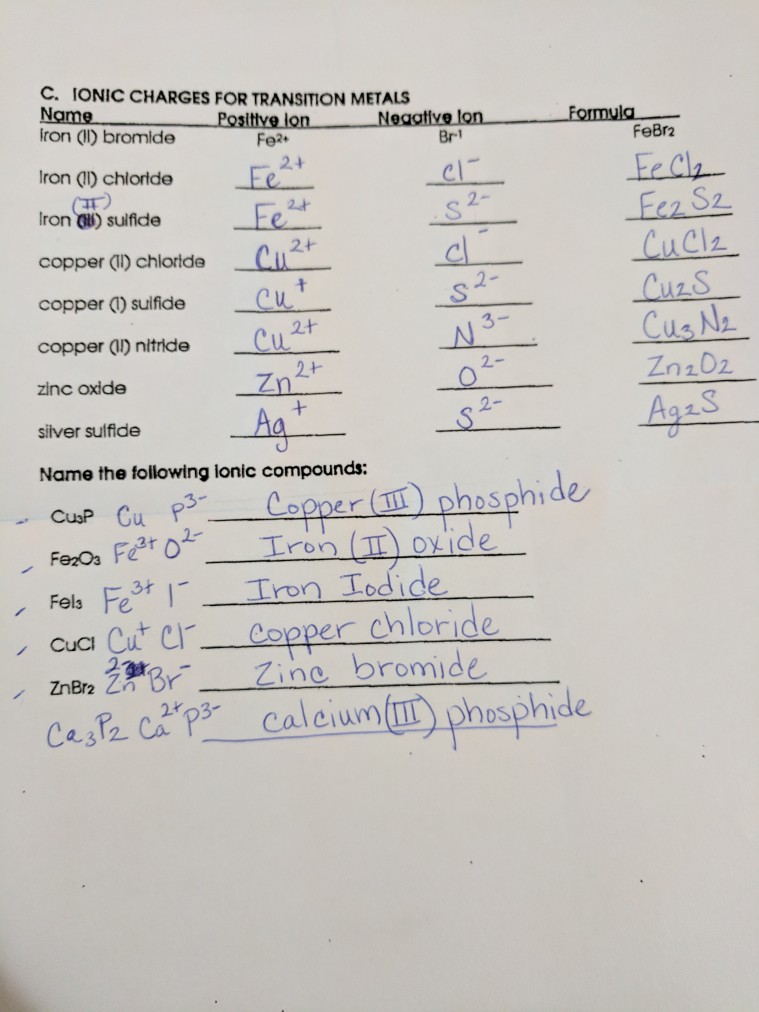 C. IONIC CHARGES FOR TRANSITION METALS
Name Positive Ion Negative Ion Formula
Iron (II) bromide Fe2+ Br-1 FeBr2
Iron (II) chloride Fe2+ Cl- FeCl2
(II)
Iron (III) sulfide Fe2+ S2- Fe2S2
copper (II) chloride Cu2+ Cl- CuCl2
copper (I) sulfide Cu+ S2- Cu2S
copper (II) nitride Cu2+ N3- Cu3N2
zinc oxide Zn2+ O2- Zn2O2
silver sulfide Ag+ S2- Ag2S
Name the following ionic compounds:
Cu3P Cu P3- Copper (III) phosphide
Fe2O3 Fe3+ O2- Iron (II) oxide
FeI3 Fe3+ I- Iron Iodide
CuCl Cu+ Cl- Copper chloride
ZnBr2 Zn2+ Br- Zinc bromide
Ca3P2 Ca2+ P3- calcium (III) phosphide